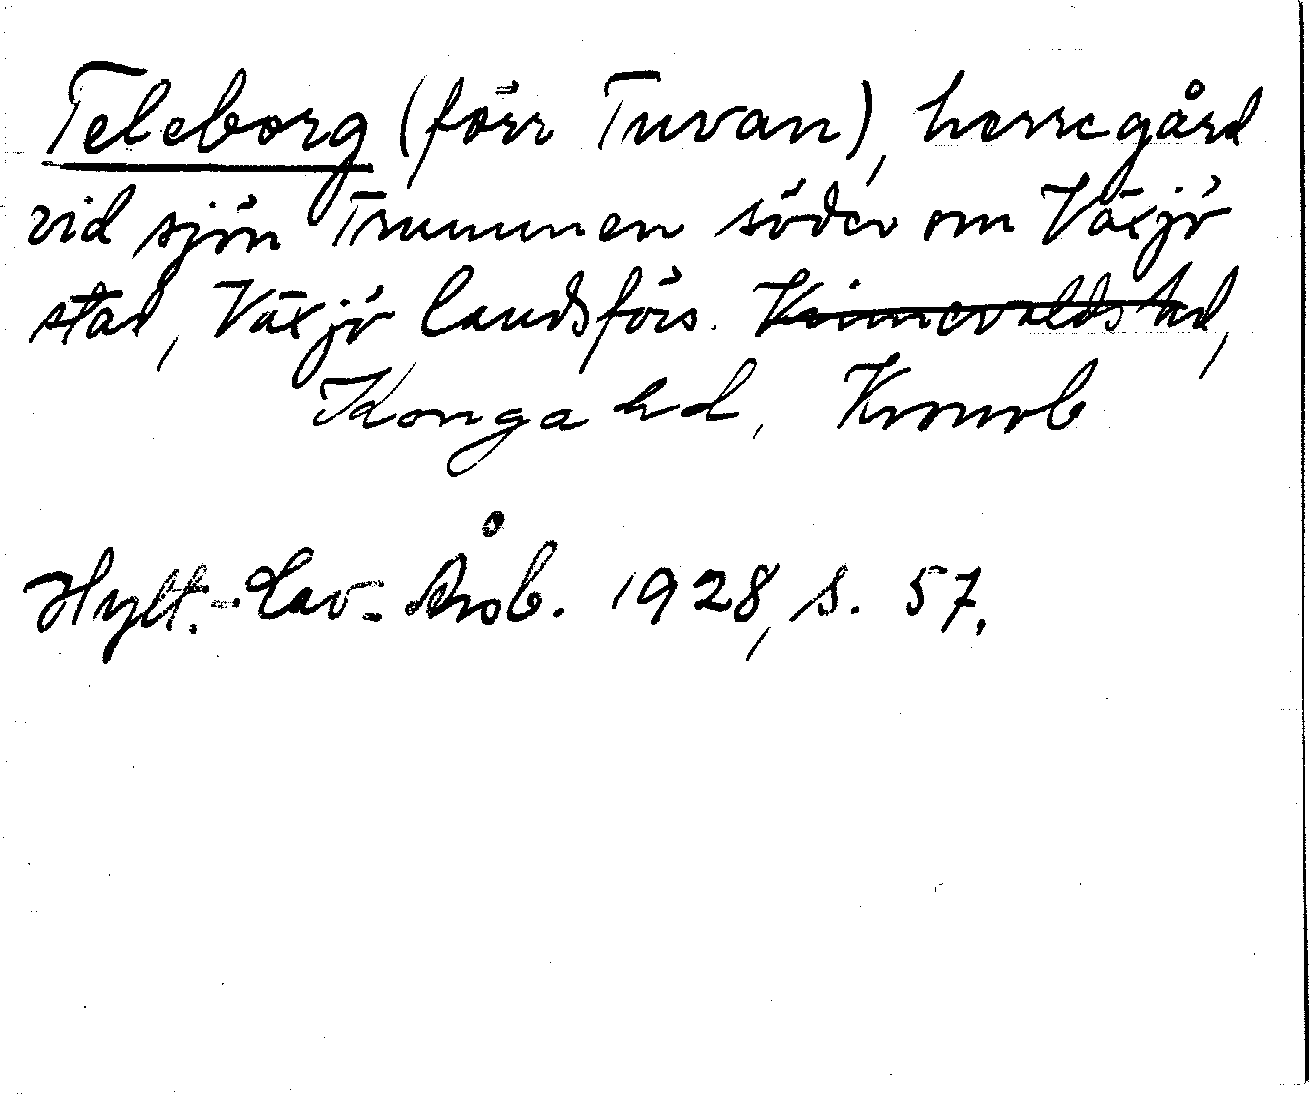 Teleborg (förr Tuvan), herregård
vid sjön Trummen söder om Växjö
stad, Växjö landsförs. Kinnevalds hd,
Konga hd, Kronob
Hylt.-Cav. Årsb. 1928, s. 57.